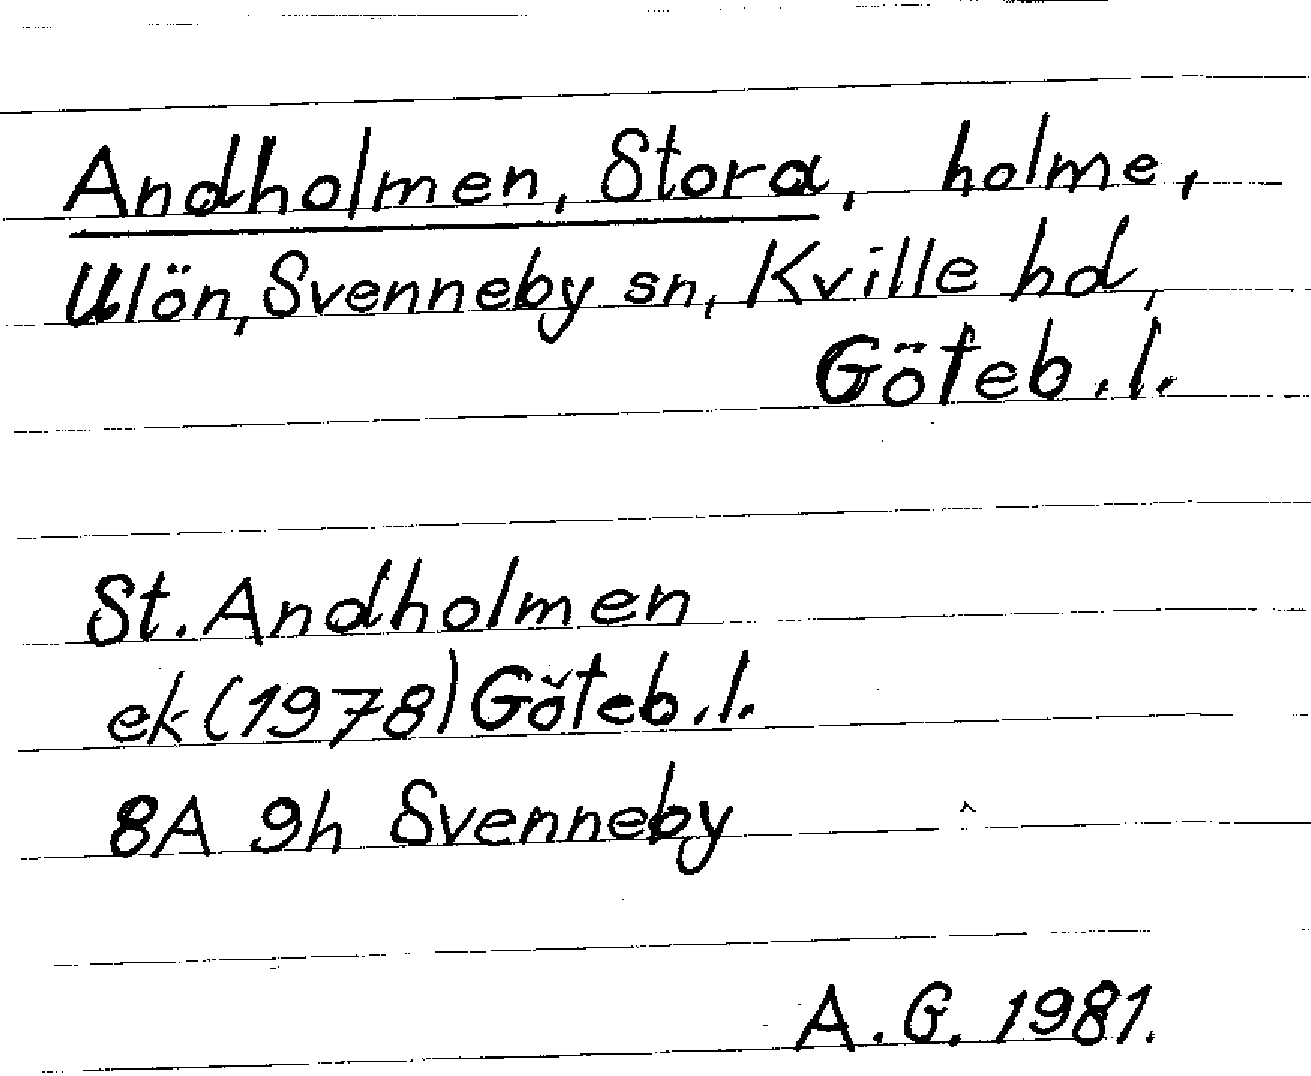 Andholmen, Stora, holme,
Ulön, Svenneby sn, Kville hd,
Göteb. l.
St. Andholmen
ek (1978) Göteb. l.
8A 9h Svenneby
A. G. 1981.